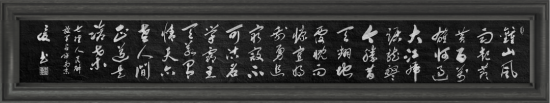 鐘山風
雨起蒼
黃百萬
雄師過
大江虎
踞龍盤
今勝昔
天翻地
覆慨而
慷宜將
剩勇追
窮寇不
可沽名
學霸王
天若有
情天亦
老人間
正道是
滄桑
七律人民解
放軍占領南京